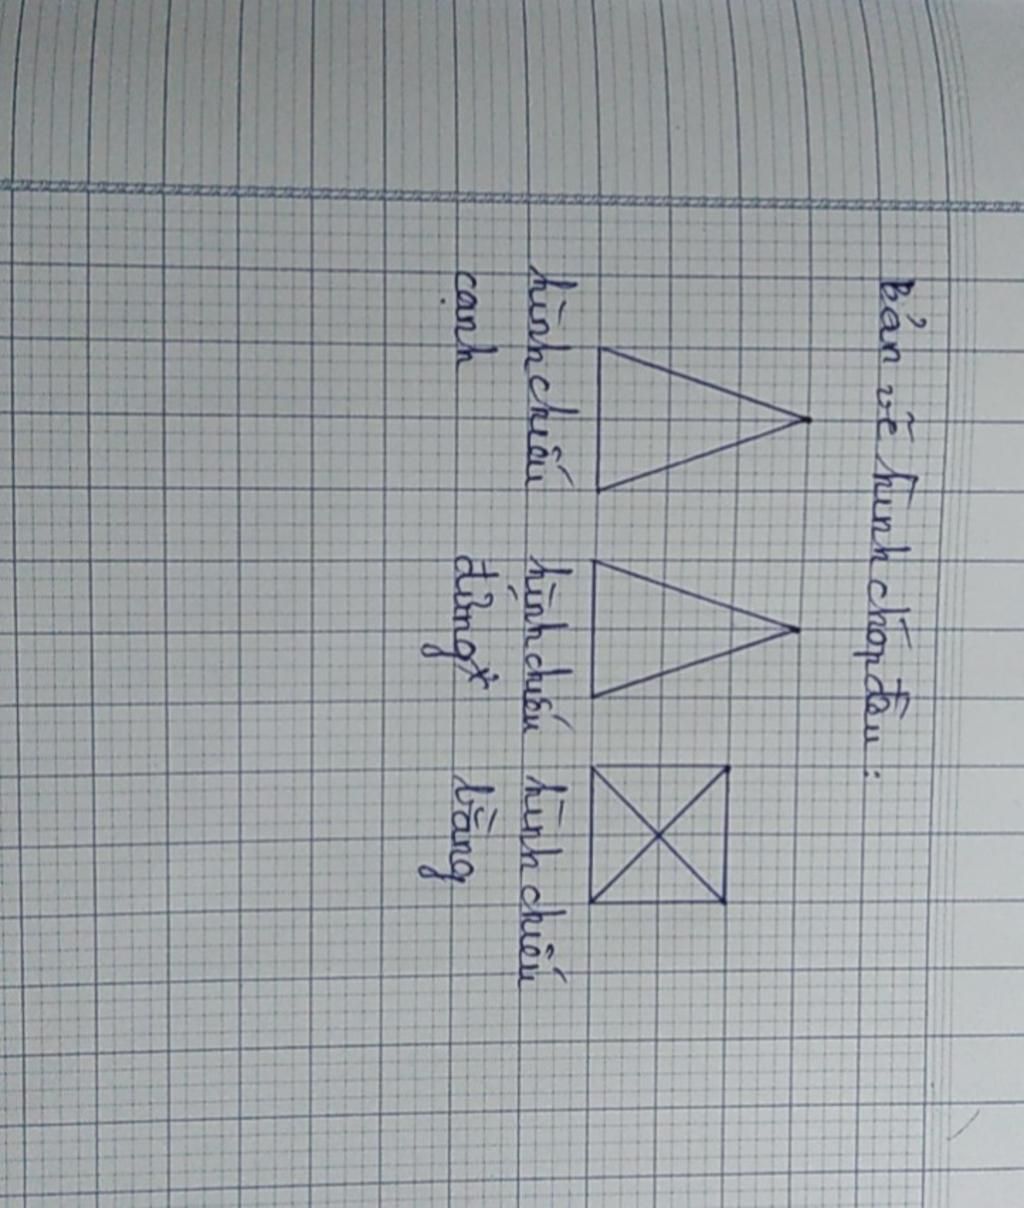 Bản vẽ hình chóp đều:
hình chiếu
cạnh
hình chiếu
đứng
hình chiếu
bằng